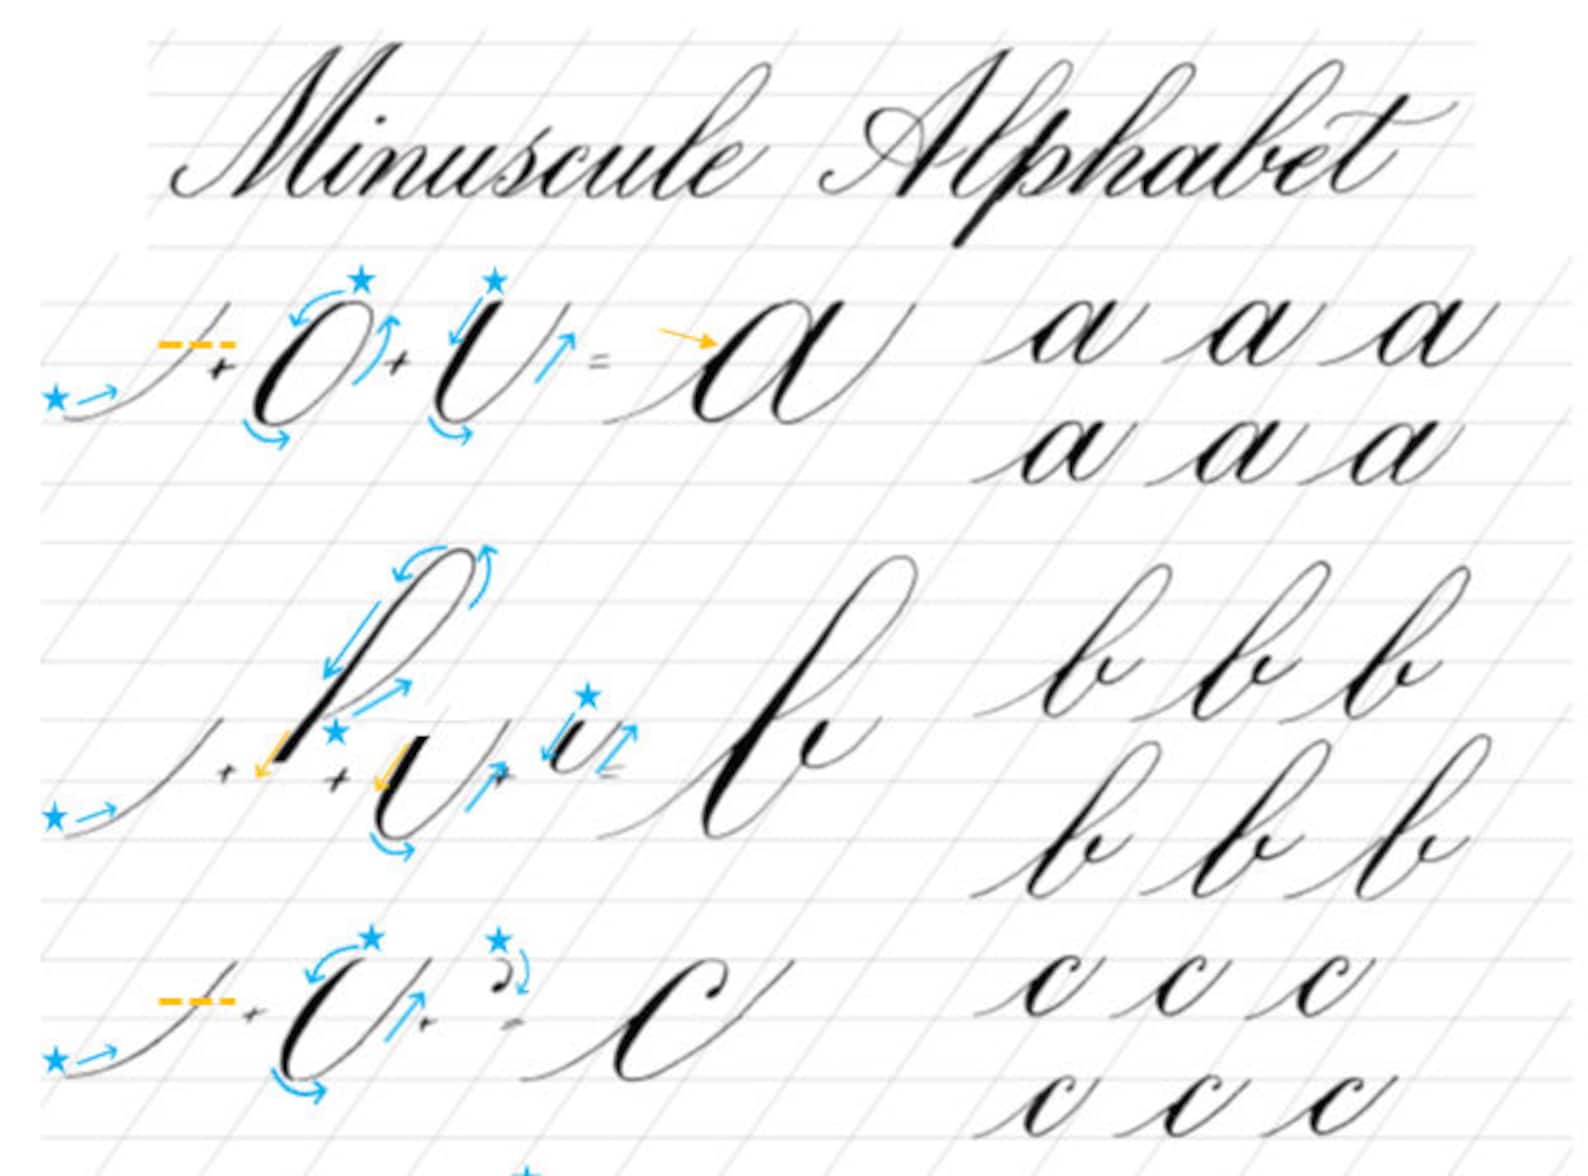 Minuscule Alphabet
+ + = a a a a
a a a
+ + + = b b b b
b b b
+ + = c c c c
c c c